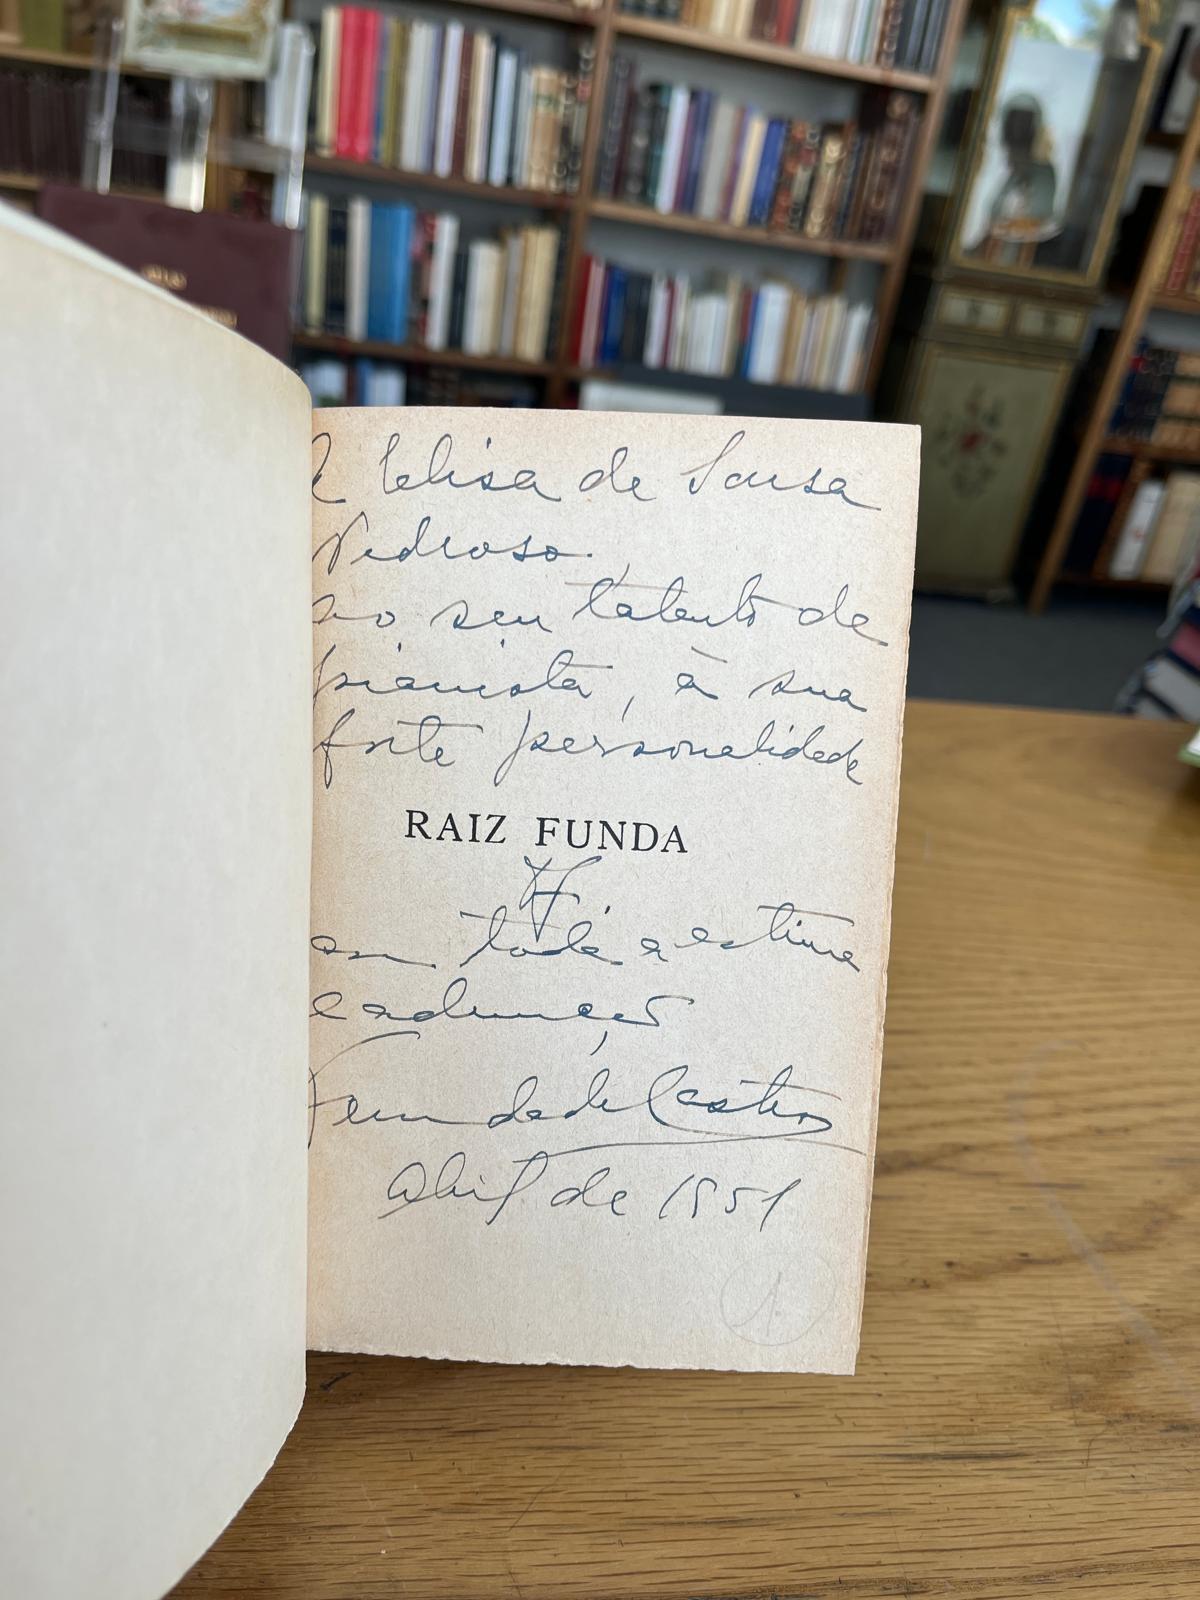 A Elisa de Sousa
Pedroso,
ao seu talento de
pianista, à sua
forte personalidade
RAIZ FUNDA
com toda a estima
e admiração,
Fernanda de Castro
Abril de 1951